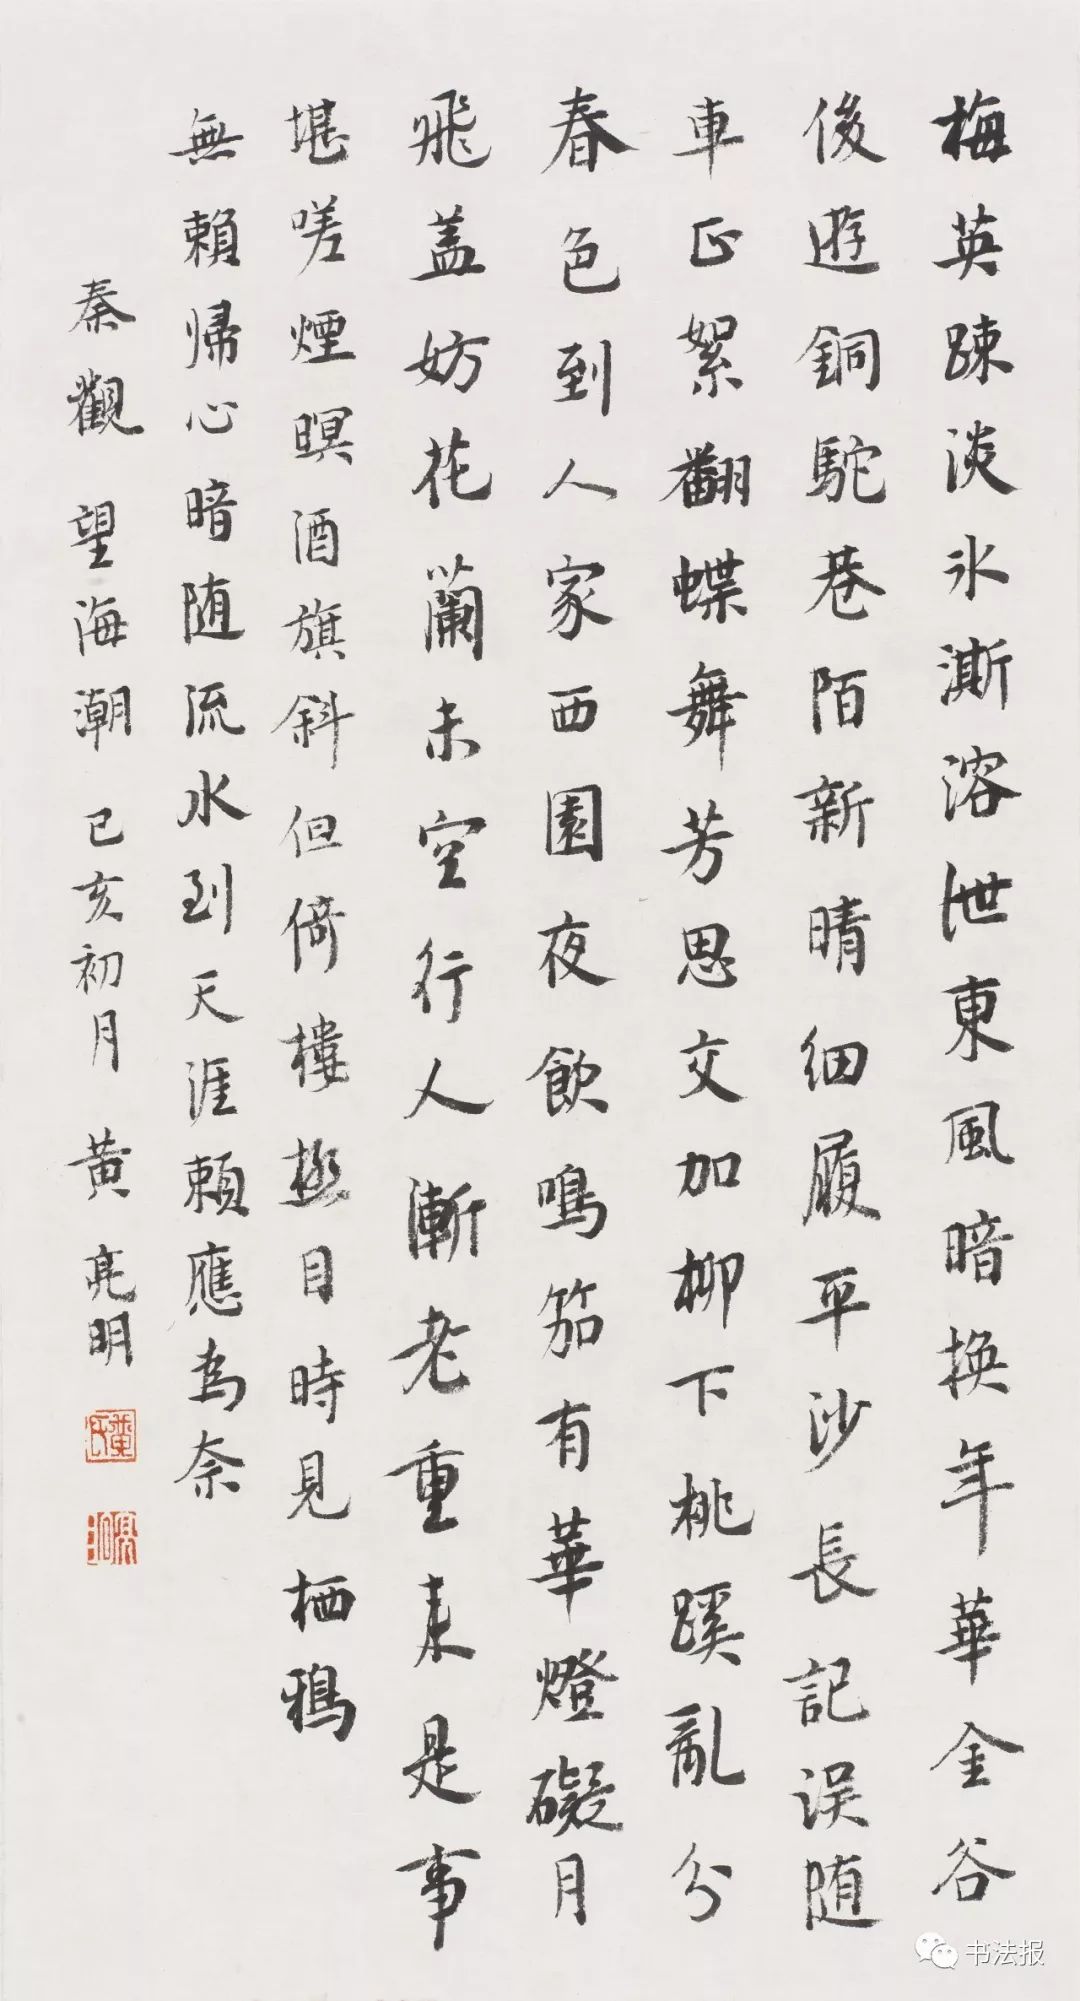 梅英踈淡氷澌溶泄東風暗換年華金谷
後遊銅駝巷陌新晴細履平沙長記误随
車正絮翻蝶舞芳思交加柳下桃蹊亂分
春色到人家西園夜飲鳴笳有華燈礙月
飛盖妨花蘭未空行人漸老重来是事
堪嗟煙暝酒旗斜但倚樓極目時見栖鴉
無賴帰心暗随流水到天涯頼應為奈
秦觀 望海潮 己亥初月 黄亮明
黄氏
书法报